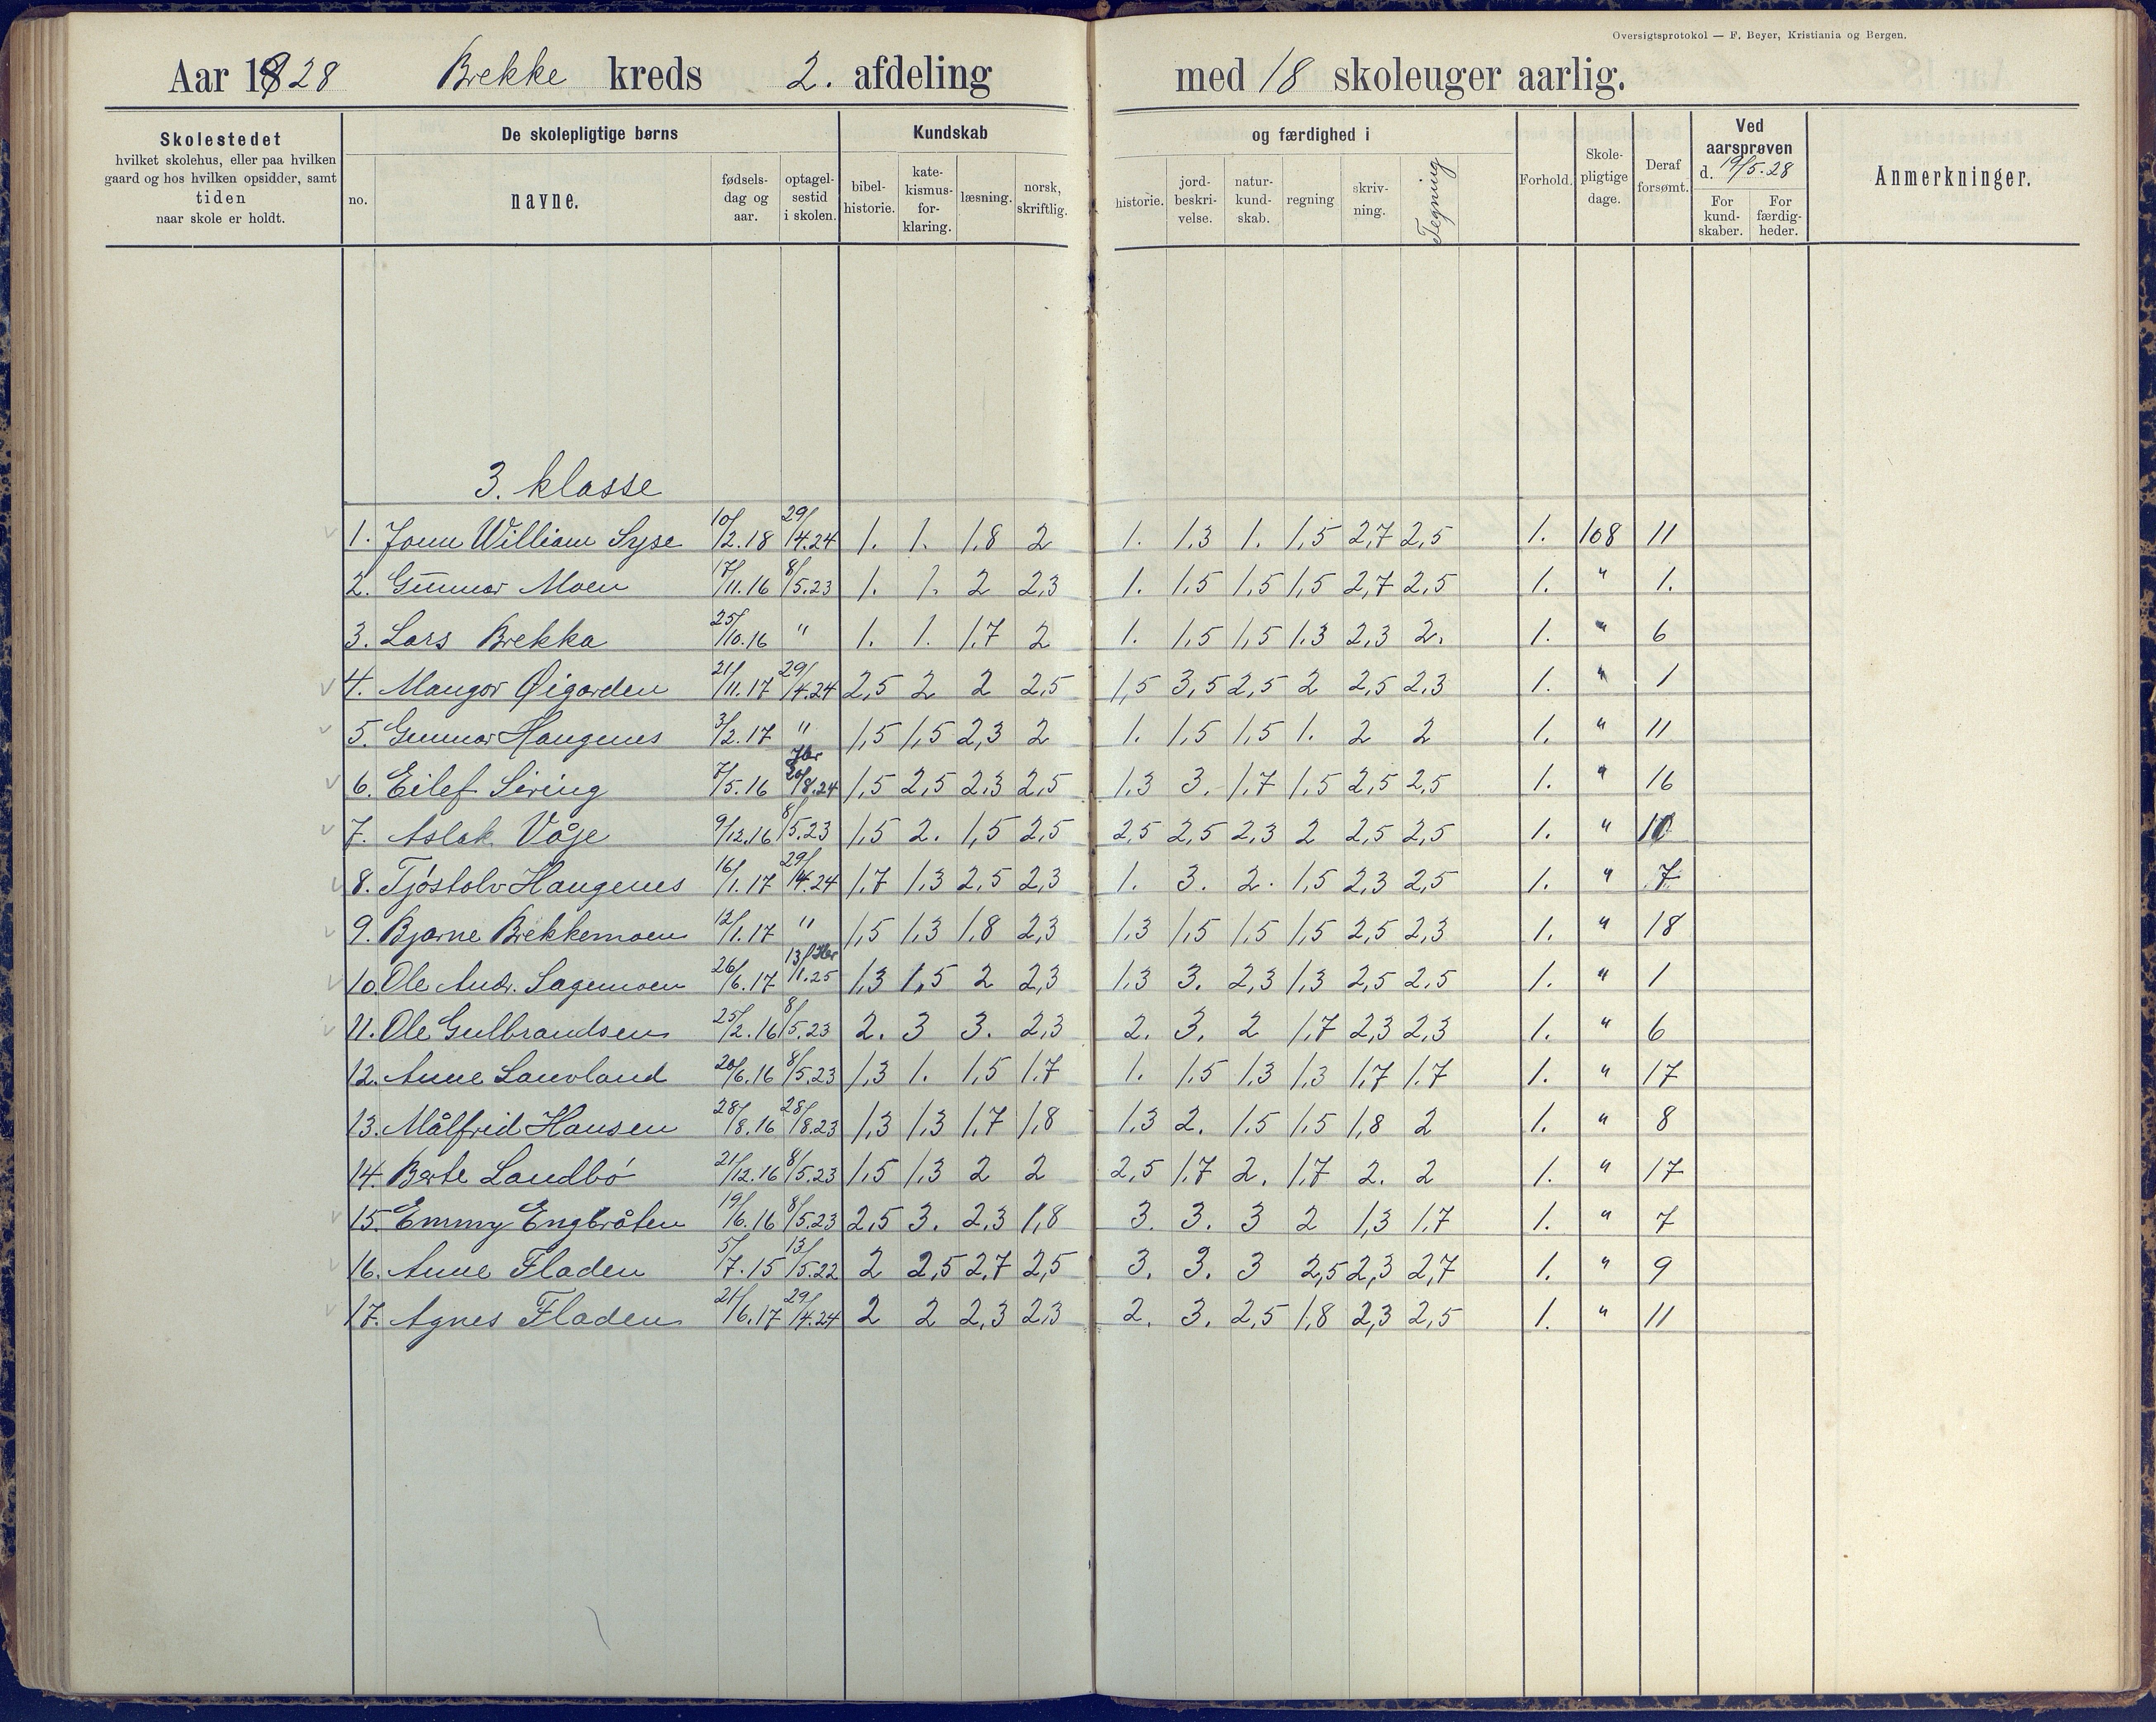 Oversigtsprotokol — F. Beyer, Kristiania og Bergen.
Aar 1928 Brekke kreds 2. afdeling med 18 skoleuger aarlig.
Skolestedet
hvilket skolehus, eller paa hvilken
gaard og hos hvilken opsidder, samt
tiden
naar skole er holdt.
De skolepligtige børns
no.
navne.
fødsels-
dag og
aar.
optagel-
sestid
i skolen.
Kundskab
bibel-
historie.
kate-
kismus-
for-
klaring.
læsning.
norsk,
skriftlig.
og færdighed i
historie.
jord-
beskri-
velse.
natur-
kund-
skab.
regning
skriv-
ning.
Tegning
Forhold.
Skole-
pligtige
dage.
Deraf
forsømt.
Ved
aarsprøven
d. 19/5.28
For
kund-
skaber.
For
færdig-
heder.
Anmerkninger.
3. klasse
1. William Syse 10/2.18 29/4.24 1. 1. 1,8 2 1. 1,3 1. 1,5 2,7 2,5 1. 108 11
2. Gunnar Moen 17/11.16 8/5.23 1. 1. 2 2,3 1. 1,5 1,5 1,5 2,7 2,5 1. " 1.
3. Lars Brekka 25/10.16 " 1. 1. 1,7 2 1. 1,5 1,5 1.3 2,3 2. 1. " 6
4. Mangor Øigarden 21/11.17 29/4.24 2,5 2 2 2,5 1,5 3,5 2,5 2 2,5 2,3 1. " 1
5. Gunnar Haugenes 3/2.17 " 1,5 1,5 2,3 2 1. 1,5 1,5 1. 2 2 1. " 11
6. Eilef Siring 7/5.16 20/8.24 1,5 2,5 2,3 2,5 1,3 3. 1,7 1,5 2,5 2,5 1. " 16
7. Aslak Våje 9/12.16 8/5.23 1,5 2. 1,5 2,5 2,5 2,5 2,3 2 2,5 2,5 1. " 10
8. Tjøstolv Haugenes 16/1.17 29/4.24 1,7 1,3 2,5 2,3 1. 3. 2. 1,5 2,3 2,5 1. " 7
9. Bjarne Brekkemoen 12/1.17 " 1,5 1,3 1,8 2,3 1,3 1,5 1,5 1,5 2,5 2,3 1. " 18
10. Ole Andr. Sagemoen 26/6.17 13/1.25 1,3 1,5 2 2,3 1,3 3. 2,3 1,3 2,5 2,5 1. " 1
11. Ole Gulbrandsen 25/2.16 8/5.23 2. 3 3. 2,3 2. 3. 2 1,7 2,3 2,3 1. " 6
12. Anne Lauvland 20/6.16 8/5.23 1,3 1. 1,5 1,7 1. 1,5 1,3 1,3 1,7 1.7 1. " 17
13. Målfrid Hansen 28/8.16 28/8.23 1,3 1,3 1,7 1,8 1,3 2. 1,5 1,5 1,8 2 1. " 8
14. Berte Landbö 21/12.16 8/5.23 1,5 1,3 2 2 2,5 1,7 2. 1,7 2. 2 1. " 17
15. Emmy Engbråten 19/6.16 8/5.23 2,5 3. 2,3 1,8 3. 3. 3 2 1,3 1,7 1. " 7
16. Anne Fladen 5/7.15 13/5.22 2 2,5 2,7 2,5 3. 3. 3 2,5 2,3 2,7 1. " 9
17. Agnes Fladen 21/6.17 29/4.24 2 2 2,3 2,3 2. 3. 2,5 1,8 2,3 2,5 1. " 11